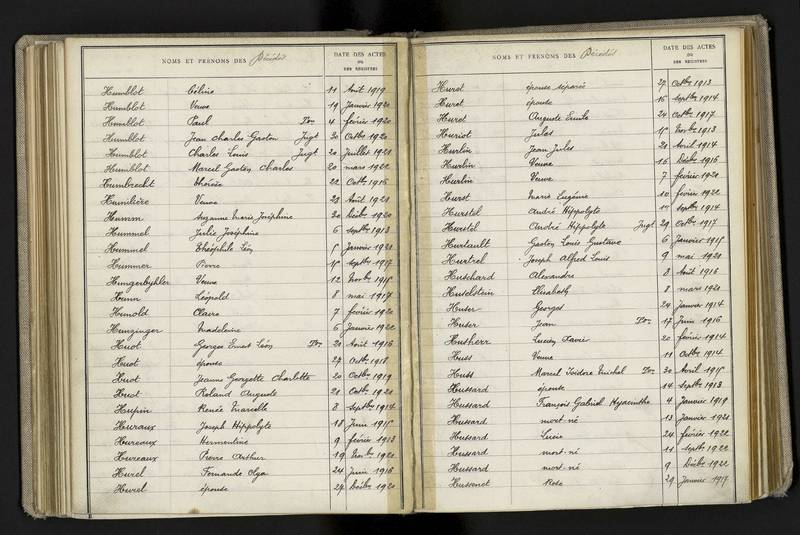 NOMS ET PRÉNOMS DES Décédés DATE DES ACTES OU DES REGISTRES
Humblot Céline 11 Août 1919
Humblot Veuve 19 Janvier 1920
Humblot Paul 4 février 1920
Humblot Jean Charles Gaston Jugt 20 Octbre 1920
Humblot Charles Louis Jugt 20 Juillet 1921
Humblot Marcel Gaston Charles 20 mars 1922
Humbrecht Thérèse 22 Octbre 1916
Humilière Veuve 23 Août 1921
Humm Suzanne Marie Joséphine 20 Décbre 1920
Hummel Julie Joséphine 6 septbre 1913
Hummel Théophile Léon Janvier 1921
Hummer Pierre septbre 1917
Hungerbyhler Veuve 12 Novbre 1915
Hunn Léopold 8 mai 1917
Hunold Claire 7 février 1920
Hunzinger Madeleine 6 Janvier 1922
Huot Georges Ernest Léon 20 Août 1916
Huot épouse 27 Octbre 1918
Huot Jeanne Georgette Charlotte 20 Octbre 1919
Huot Roland Auguste 21 Octbre 1921
Hupin Renée Marcelle 8 septbre 1914
Huraux Joseph Hippolyte 18 Juin 1915
Hureaux Hermentine 9 février 1913
Hureaux Pierre Arthur 19 Novbre 1921
Hurel Fernande Olga 24 Juin 1916
Hurel épouse 27 Décbre 1920
NOMS ET PRÉNOMS DES Décédés DATE DES ACTES OU DES REGISTRES
Huret épouse séparée 27 Octbre 1913
Huret épouse 16 septbre 1914
Huret Auguste Emile 24 Octbre 1917
Huriot Jules Novbre 1913
Hurlin Jean Jules 21 Avril 1914
Hurlin Veuve 16 Décbre 1916
Hurlin Veuve 7 février 1920
Hurst Marie Eugénie 10 février 1922
Hurstel André Hippolyte septbre 1914
Hurstel André Hippolyte Jugt 29 Octbre 1917
Hurtault Gaston Louis Gustave 6 Janvier 1915
Hurtrel Joseph Alfred Louis 9 mai 1920
Huschard Alexandre 3 Août 1916
Huselstein Elisabeth 8 mars 1920
Huser Georges 24 Janvier 1914
Huser Jean 17 Juin 1916
Husherr Lucien Xavier 20 février 1914
Huss Veuve 11 Octbre 1914
Huss Marcel Isidore Michel 30 Avril 1915
Hussard épouse 14 septbre 1913
Hussard François Gabriel Hyacinthe 4 Janvier 1919
Hussard mort-né 13 Janvier 1921
Hussard Lucie 24 février 1922
Hussard mort-né 11 septbre 1922
Hussard mort-né 9 Décbre 1922
Hussenet Rose 29 Janvier 1917